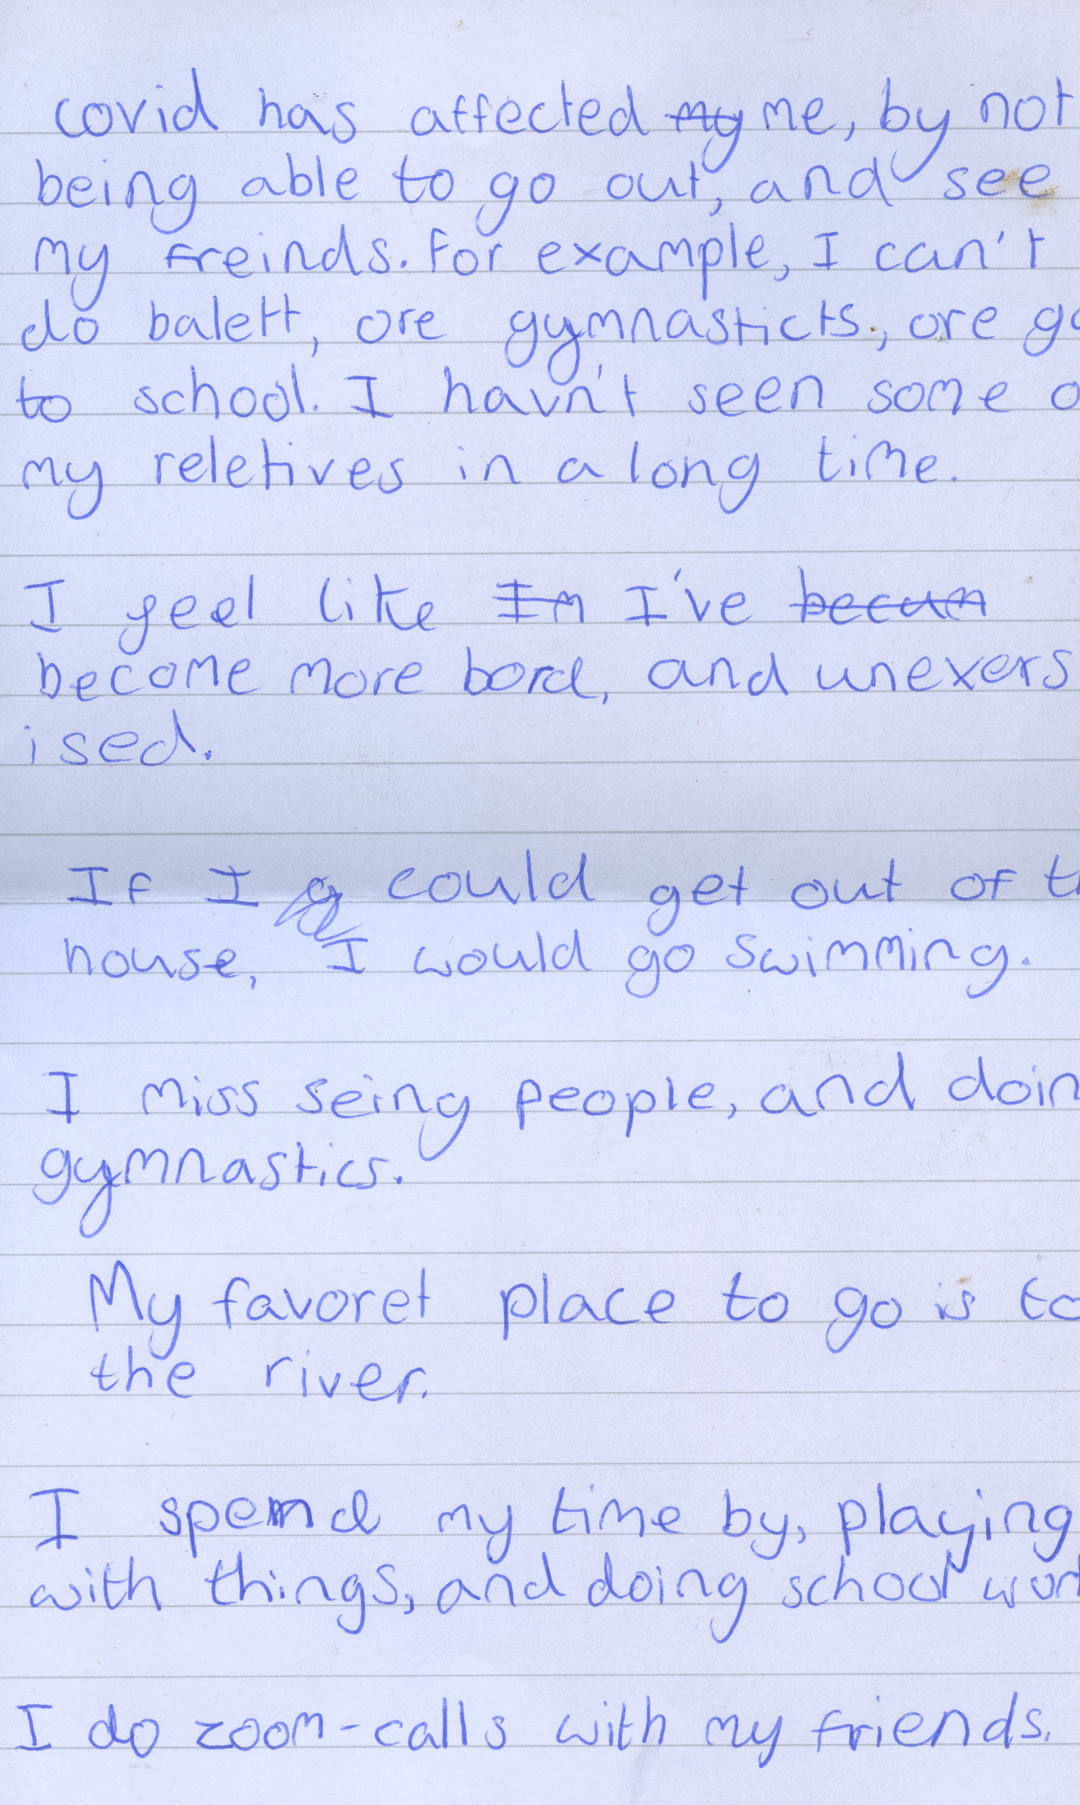 covid has affected my me, by not
being able to go out, and see
my freinds. For example, I can't
do balett, ore gymnasticts, ore go
to school. I havn't seen some o
my reletives in a long time.
I feel like Im I've becum
become more bord, and unexers
ised.
If I g could get out of th
house, I would go swimming.
I miss seing people, and doin
gymnastics.
My favoret place to go is to
the river.
I spend my time by, playing
with things, and doing school work
I do zoom-calls with my friends.